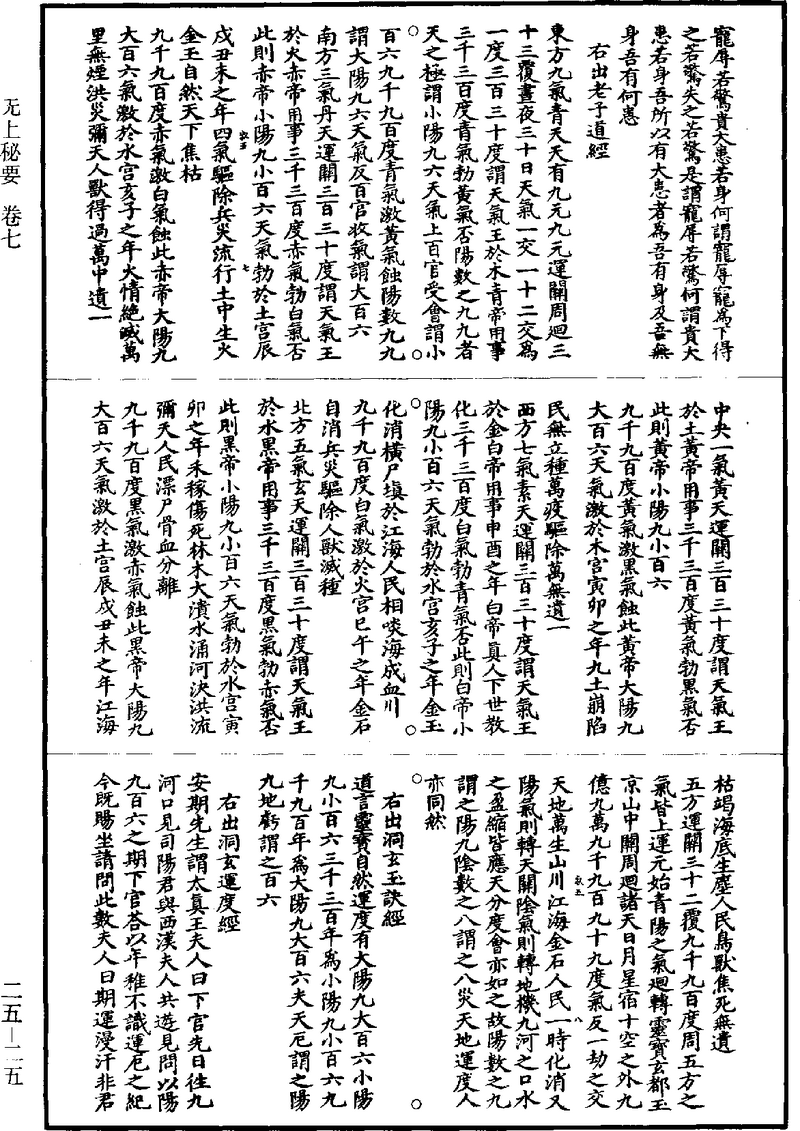 寵辱若驚貴大患若身何謂寵辱寵為下得
之若驚失之若驚是謂寵辱若驚何謂貴大
患若身吾所以有大患者為吾有身及吾無
身吾有何患
右出老子道經
東方九氣青天天有九元九元運關周迴三
十三覆晝夜三十日天氣一交一十二交為
一度三百三十度謂天氣王於木青帝用事
三千三百度青氣勃黃氣否陽數之九九者
天之極謂小陽九六天氣上百官受會謂小
百六九千九百度青氣激黃氣蝕陽數九九
謂大陽九六天氣反百官收氣謂大百六
南方三氣丹天運關三百三十度謂天氣王
於火赤帝用事三千三百度赤氣勃白氣否
此則赤帝小陽九小百六天氣勃於土宮辰
戌丑未之年四氣驅除兵災流行土中生火
金玉自然天下焦枯
九千九百度赤氣激白氣蝕此赤帝大陽九
大百六氣激於水宮亥子之年大情絶滅萬
里無煙洪災彌天人獸得過萬中遺一
中央一氣黃天運關三百三十度謂天氣王
於土黃帝用事三千三百度黃氣勃黑氣否
此則黃帝小陽九小百六
九千九百度黃氣激黑氣蝕此黃帝大陽九
大百六天氣激於木宮寅卯之年九土崩陷
民無立種萬疫驅除萬無遺一
西方七氣素天運關三百三十度謂天氣王
於金白帝用事申酉之年白帝真人下世教
化三千三百度白氣勃青氣否此則白帝小
陽九小百六天氣勃於水宮亥子之年金玉
化消橫尸填於江海人民相啖海成血川
九千九百度白氣激於火宮巳午之年金石
自消兵災驅除人獸滅種
北方五氣玄天運關三百三十度謂天氣王
於水黑帝用事三千三百度黑氣勃赤氣否
此則黑帝小陽九小百六天氣勃於水宮寅
卯之年禾稼傷死林木大潰水涌河決洪流
彌天人民漂尸骨血分離
九千九百度黑氣激赤氣蝕此黑帝大陽九
大百六天氣激於土宮辰戌丑未之年江海
枯竭海底生塵人民鳥獸焦死無遺
五方運關三十二覆九千九百度周五方之
氣皆上運元始青陽之氣迴轉靈寶玄都玉
京山中關周迴諸天日月星宿十空之外九
億九萬九千九百九十九度氣反一劫之交
天地萬生山川江海金石人民一時化消又
陽氣則轉天關陰氣則轉地機九河之口水
之盈縮皆應天分度會亦如之故陽數之九
謂之陽九陰數之八謂之八災天地運度人
亦同然
右出洞玄玉訣經
道言靈寶自然運度有大陽九大百六小陽
九小百六三千三百年為小陽九小百六九
千九百年為大陽九大百六夫天厄謂之陽
九地虧謂之百六
右出洞玄運度經
安期先生謂太真王夫人曰下官先日往九
河口見司陽君與西漢夫人共遊見問以陽
九百六之期下官答以年稚不識運厄之紀
今既賜坐請問此數夫人曰期運漫汗非君
无上秘要 卷七
二五—二五